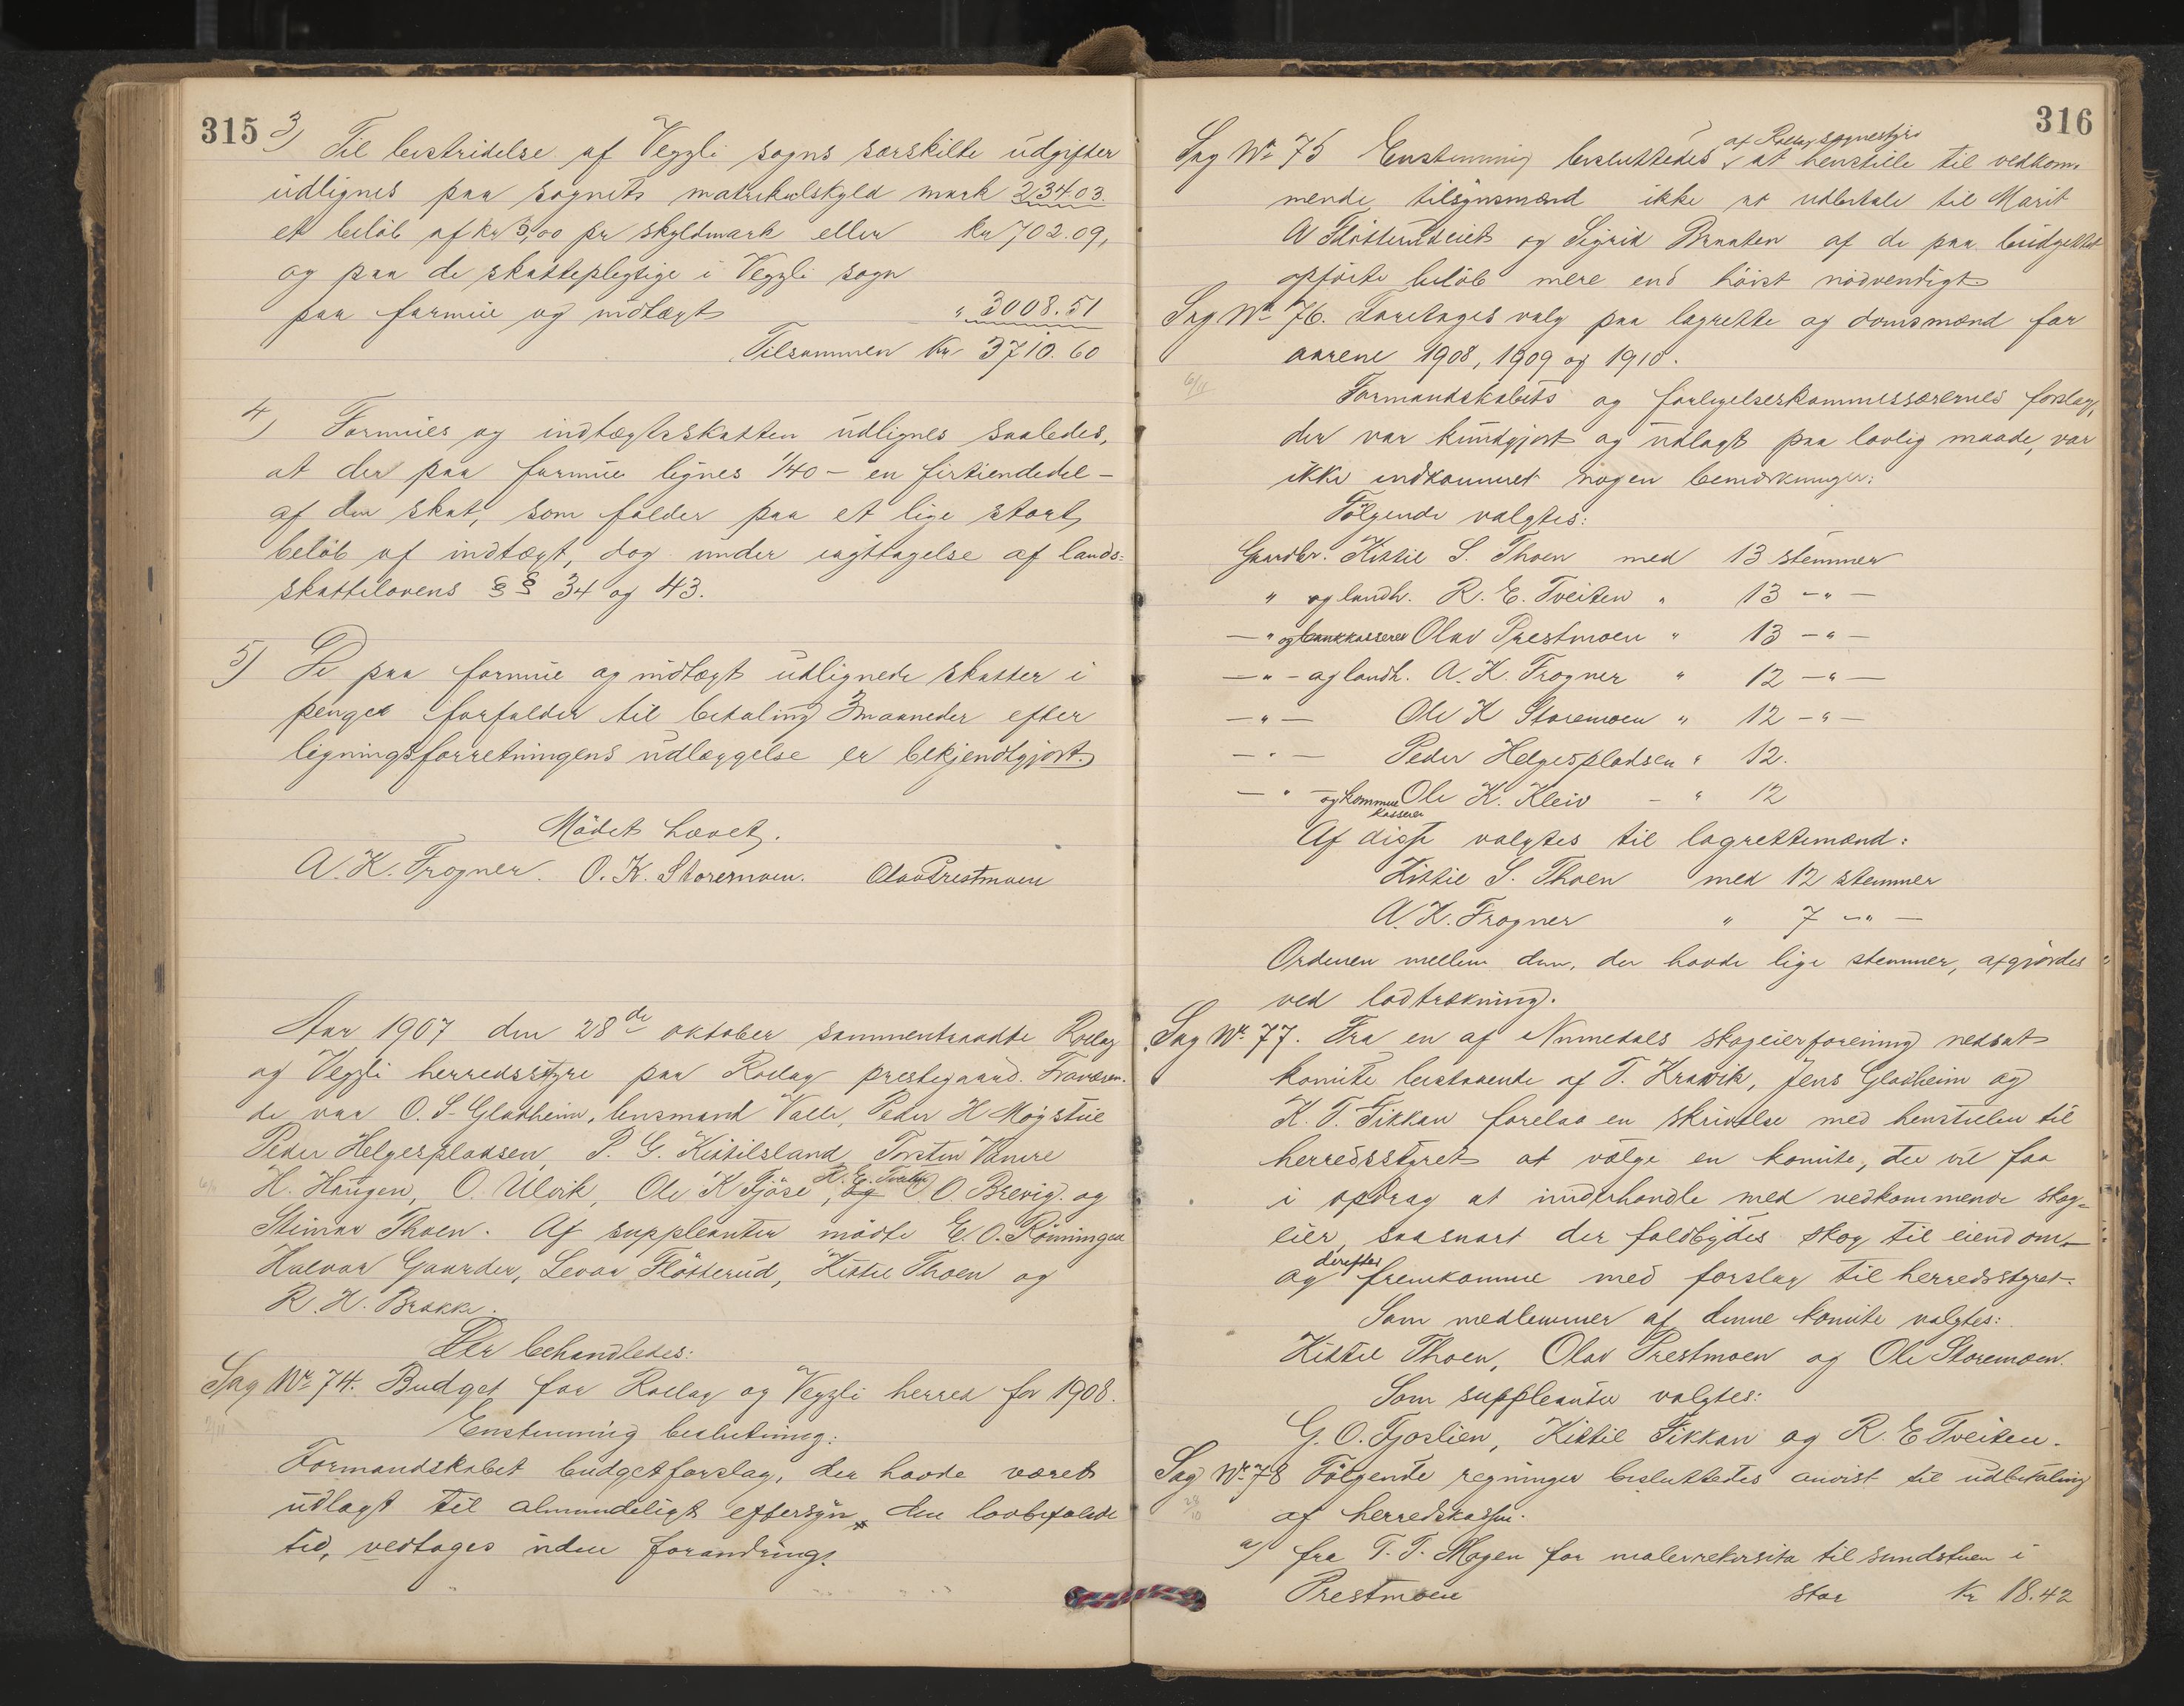 315
3) Til bestridelse af Veggli sogns særskilte udgifter
udlignes paa sognets matrikulskyld mark 234.03.
et beløb af kr 3,00 pr skyldmark eller kr 702.09,
og paa de skattepligtige i Veggli sogn
paa formue og indtægt " 3008.51
Tilsammen Kr 3710.60
4) Formues og indtægtsskatten udlignes saaledes,
at der paa formue lignes 1/40 - en firtiendedel -
af den skat, som falder paa et lige stort
beløb af indtægt, dog under iagttagelse af lands-
skattelovens §§ 34 og 43.
5) De paa formue og indtægt udlignede skatter i
penger forfalder til betaling 3 maaneder efter
ligningsforretningens udlæggelse er bekjendtgjort.
Mødet hævet.
A. K. Frogner. O. K. Storemoen. Olav Prestmoen
Aar 1907 den 28de oktober sammentraadte Rollag
og Veggli herredsstyre paa Rollag prestegaard. Fraværen-
de var O. S. Gladheim, lensmand Valle, Peder H Møgstue
Peder Helgespladsen, P. G. Kittilsland, Torsten Vannre
H. Haugen, O. Ulvik, Ole K Fjøse, R. E. Tveiten O. Brevig. og
Steinar Thoen. Af suppleanter mødte E. O. Røiningen
Halvor Gaarder, Levor Fløtterud, Kittil Thoen og
R. H. Brakke.
Der behandledes:
Sag No 74. Budget for Rollag og Veggli herred for 1908.
Enstemmig beslutning:
Formandskabet budgetforslag, der havde været
udlagt til almindeligt eftersyn den lovbefalede
tid, vedtages uden forandring.
316
Sag No 75 Enstemmig besluttedes af Rollag sognestyre at henstille til vedkom-
mende tilsynsmænd ikke at udbetale til Marit
A Fløtterudeiet og Sigrid Braaten af de paa budgettet
opførte beløb mere end høist nødvendigt
Sag No 76. Foretages valg paa lagrette og domsmænd for
aarene 1908, 1909 og 1910.
6/11
Formandskabets og forligelseskommissærernes forslag,
der var kundgjort og udlagt paa lovlig maade, var
ikke indkommet nogen bemærkninger.
Følgende valgtes:
Gaardbr. Kittil S. Thoen med 13 stemmer
" og landh. R. E. Tveiten " 13 -"-
-" og bankkasserer Olav Prestmoen " 13 -"-
-"- og landh. A. K. Frogner " 12 -"-
-"- Ole K Storemoen " 12 -"-
-"- Peder Helgespladsen " 12.
-"- og kommunekasserer Ole K. Kleiv - " 12
Af disse valgtes til lagrettemænd:
Kittil S. Thoen med 12 stemmer
A. K. Frogner " 7 -"-
Ordenen mellem dem, der havde lige stemmer, afgjordes
ved lodtrækning.
Sag No 77. Fra en af Numedals skogeierforening nedsat
komite bestaaende af T. Kravik, Jens Gladheim og
K. T. Fikkan forelaa en skrivelse med henstillen til
herredsstyret at vælge en komite, der vil faa
i opdrag at underhandle med vedkommende skog-
eier, saasnart der faldbydes skog til eiendom
og derefter fremkomme med forslag til herredsstyret.
Som medlemmer af denne komite valgtes:
Kittil Thoen, Olav Prestmoen og Ole Storemoen.
Som suppleanter valgtes:
G. O. Fjoslien, Kittil Fikkan og R. E Tveiten.
Sag No 78 Følgende regninger besluttedes anvist til udbetaling
28/10
af herredskassen.
a) fra T. T. Mogen for malerrekvisita til sundstuen i
Prestmoen stor kr 18.42